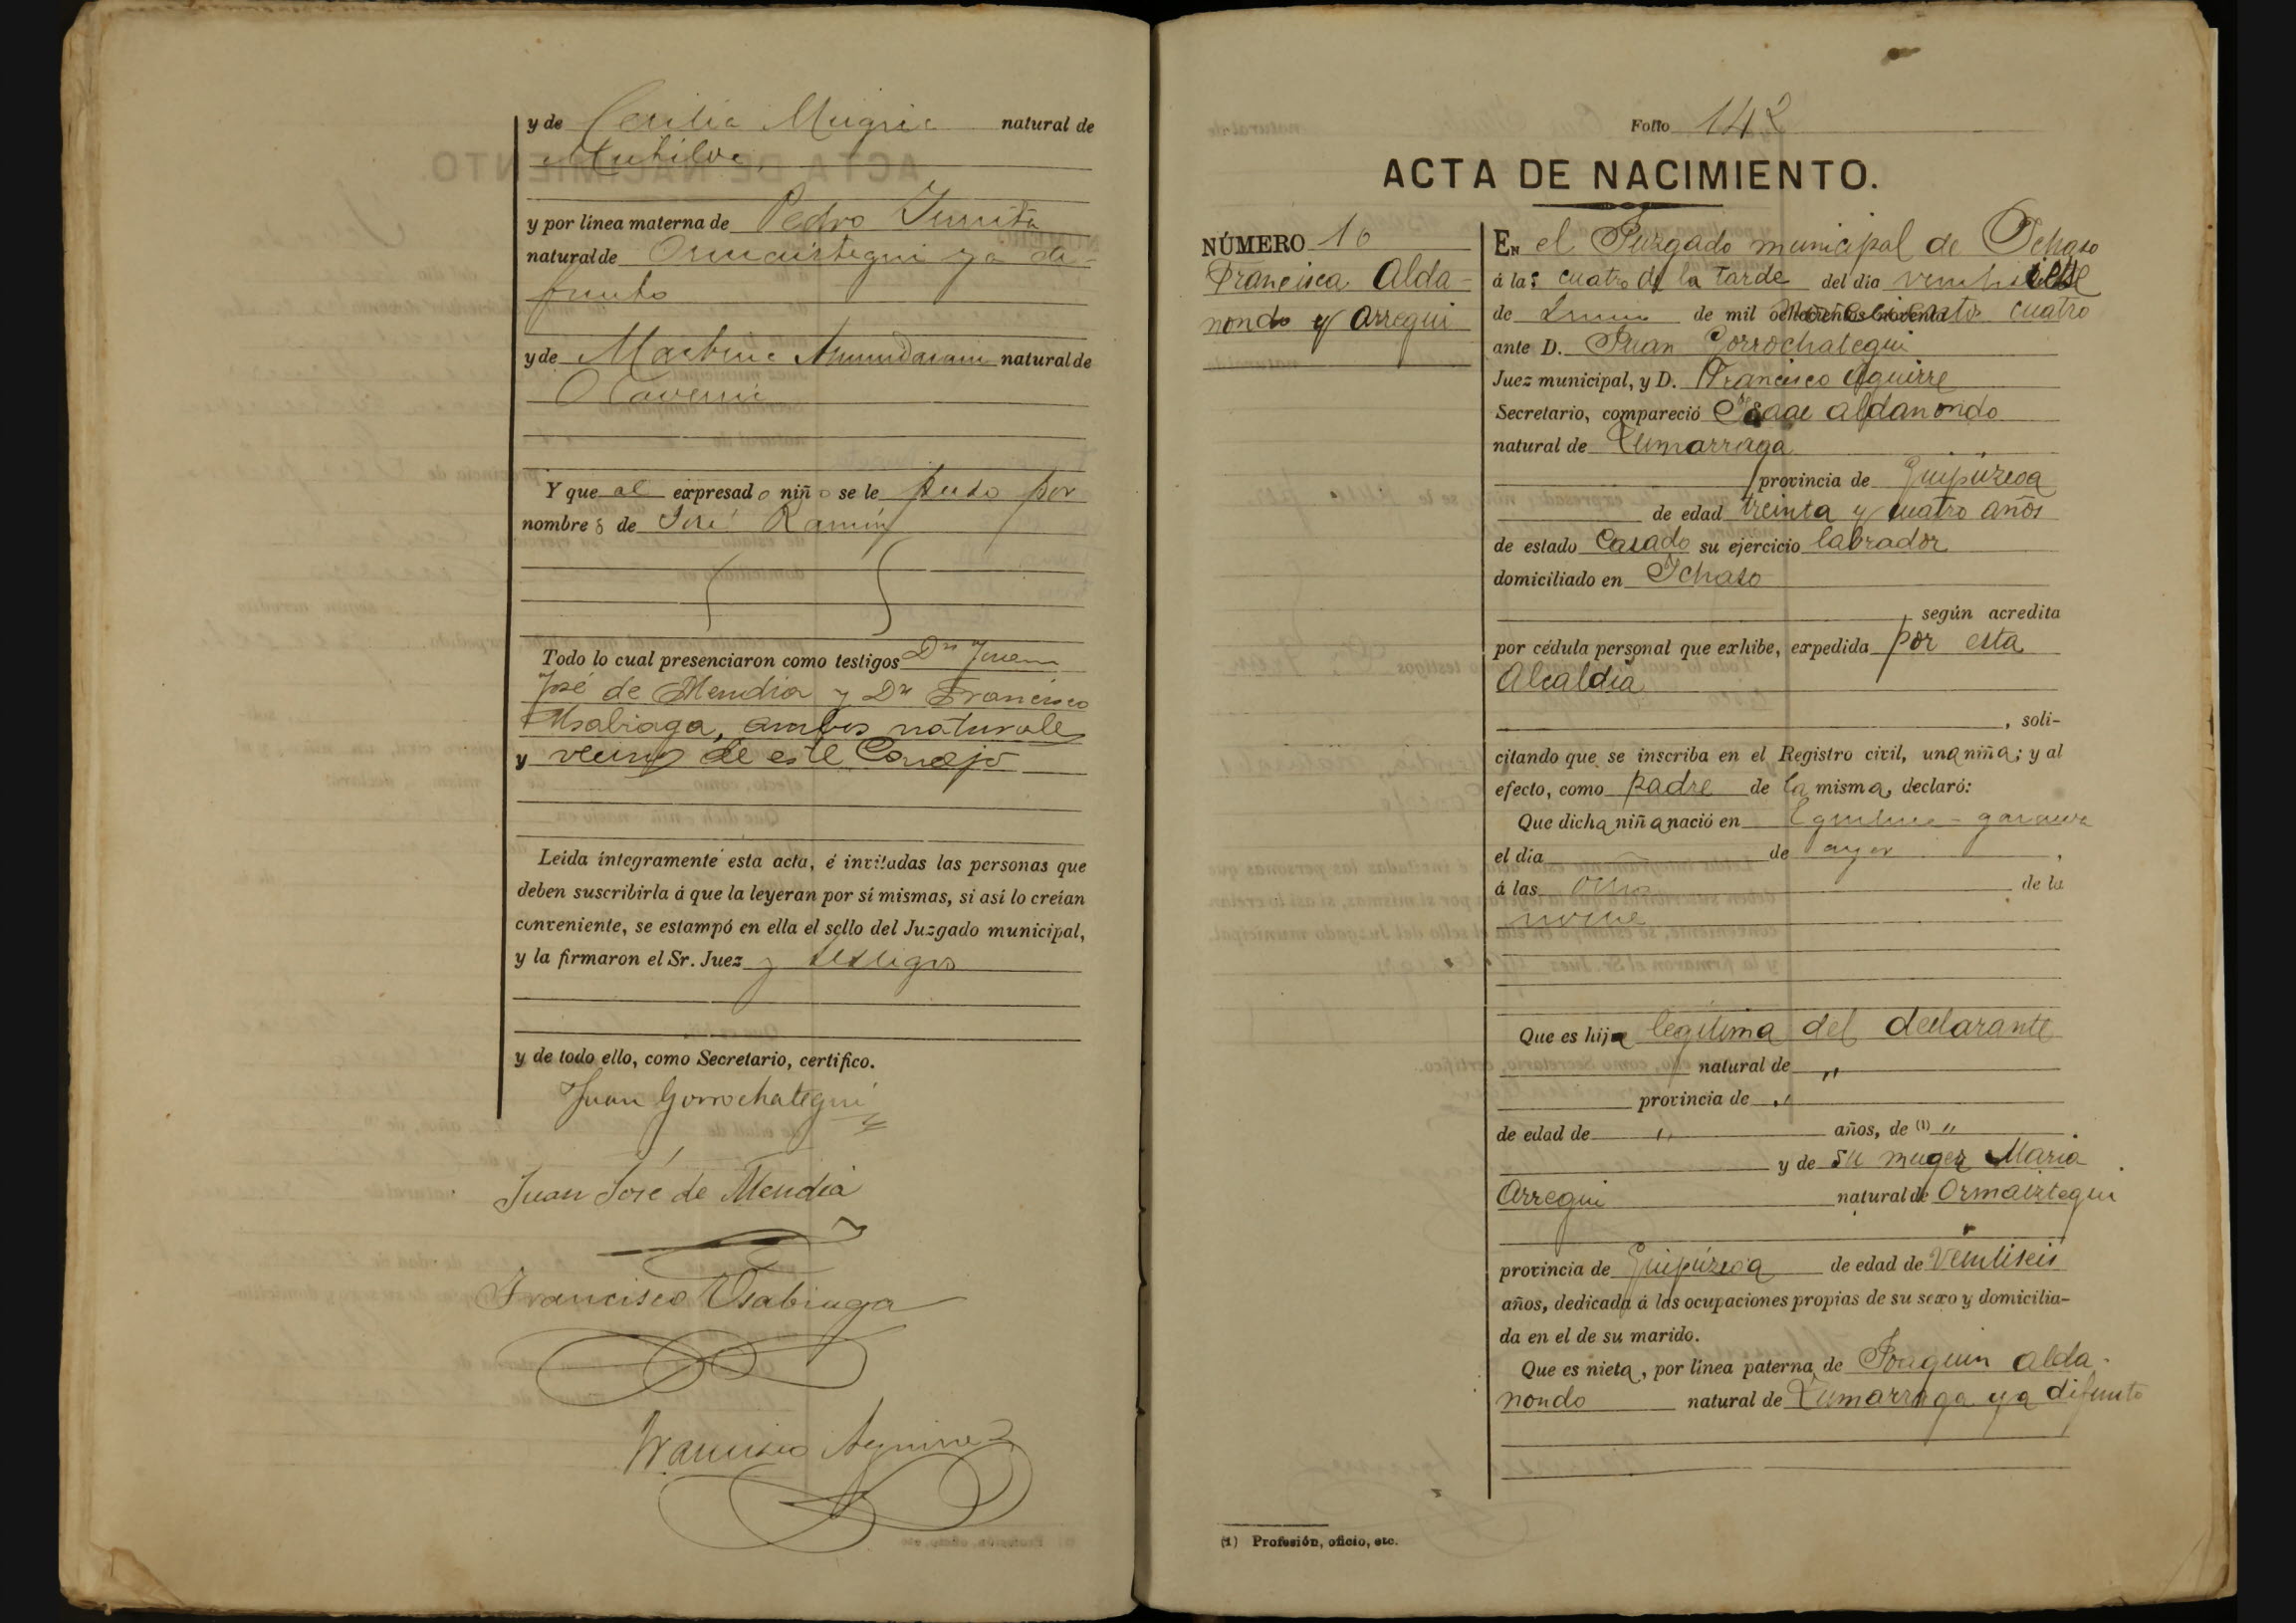 y de Cecilia Mugica natural de
Mutiloa
y por línea materna de Pedro Iturrita
natural de Ormaiztegui ya di-
funto
y de Martina Amundarain natural de
Olaverria
Y que al expresado niño se le puso por
nombres de José Ramón
Todo lo cual presenciaron como testigos Dn Juan
José de Mendia y Dn Francisco
Usabiaga, ambos naturales
y vecinos de este Concejo
Leída íntegramente esta acta, é invitadas las personas que
deben suscribirla á que la leyeran por sí mismas, si así lo creían
conveniente, se estampó en ella el sello del Juzgado municipal,
y la firmaron el Sr. Juez y testigos
y de todo ello, como Secretario, certifico.
Juan Gorrochategui
Juan José de Mendia
Francisco Usabiaga
Francisco Aguirre
Folio 142
ACTA DE NACIMIENTO.
NÚMERO 10
Francisca Alda-
nondo y Arregui
EN el Juzgado municipal de Ichaso
á las cuatro de la tarde del dia
de de mil novecientos cuatro
ante D. Juan Gorrochategui
Juez municipal, y D. Francisco Aguirre
Secretario, compareció Isaac Aldanondo
natural de Zumarraga
provincia de Guipúzcoa
de edad treinta y cuatro años
de estado Casado su ejercicio labrador
domiciliado en Ichaso
según acredita
por cédula personal que exhibe, expedida por esta
Alcaldia
, soli-
citando que se inscriba en el Registro civil, una niña; y al
efecto, como padre de la misma, declaró:
Que dicha niña nació en
el dia de ayer,
á las ocho de la
noche
Que es hija legitima del declarante
natural de "
provincia de "
de edad de " años, de (1) "
y de su muger Maria
Arregui natural de Ormaiztegui
provincia de Guipúzcoa de edad de veintiseis
años, dedicada á las ocupaciones propias de su sexo y domicilia-
da en el de su marido.
Que es nieta, por línea paterna de Joaquin Alda-
nondo natural de Zumarraga ya difunto
(1) Profesión, oficio, etc.